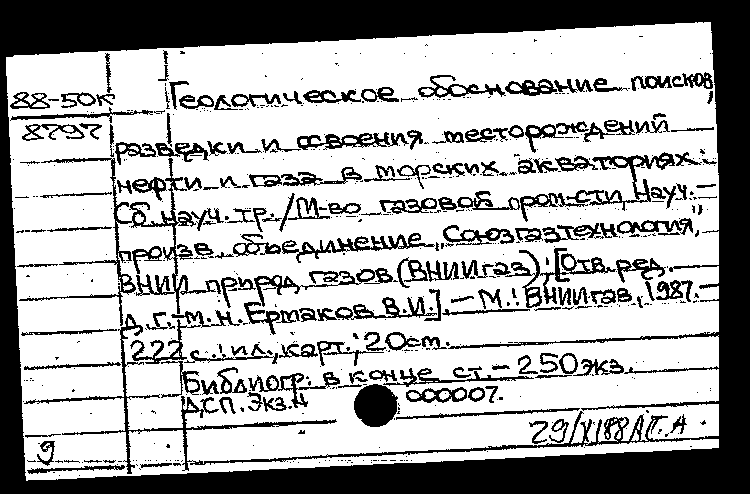 88-50к Геологическое обоснование поисков,
8797 разведки и освоения месторождений
нефти и газа в морских акваториях:
Сб. науч. тр./М-во газовой пром-сти, Науч.-
произв. объединение „Союзгазтехнология",
ВНИИ природ. газов (ВНИИгаз); [Отв. ред.
д.г.-м.н. Ермаков В.И.].- М.: ВНИИгаз, 1987.-
222 с.: ил., карт.; 20 см.
Библиогр. в конце ст.- 250 экз.
ДСП. Экз. N 000007.
29/XI 88 Л.Г.А
9